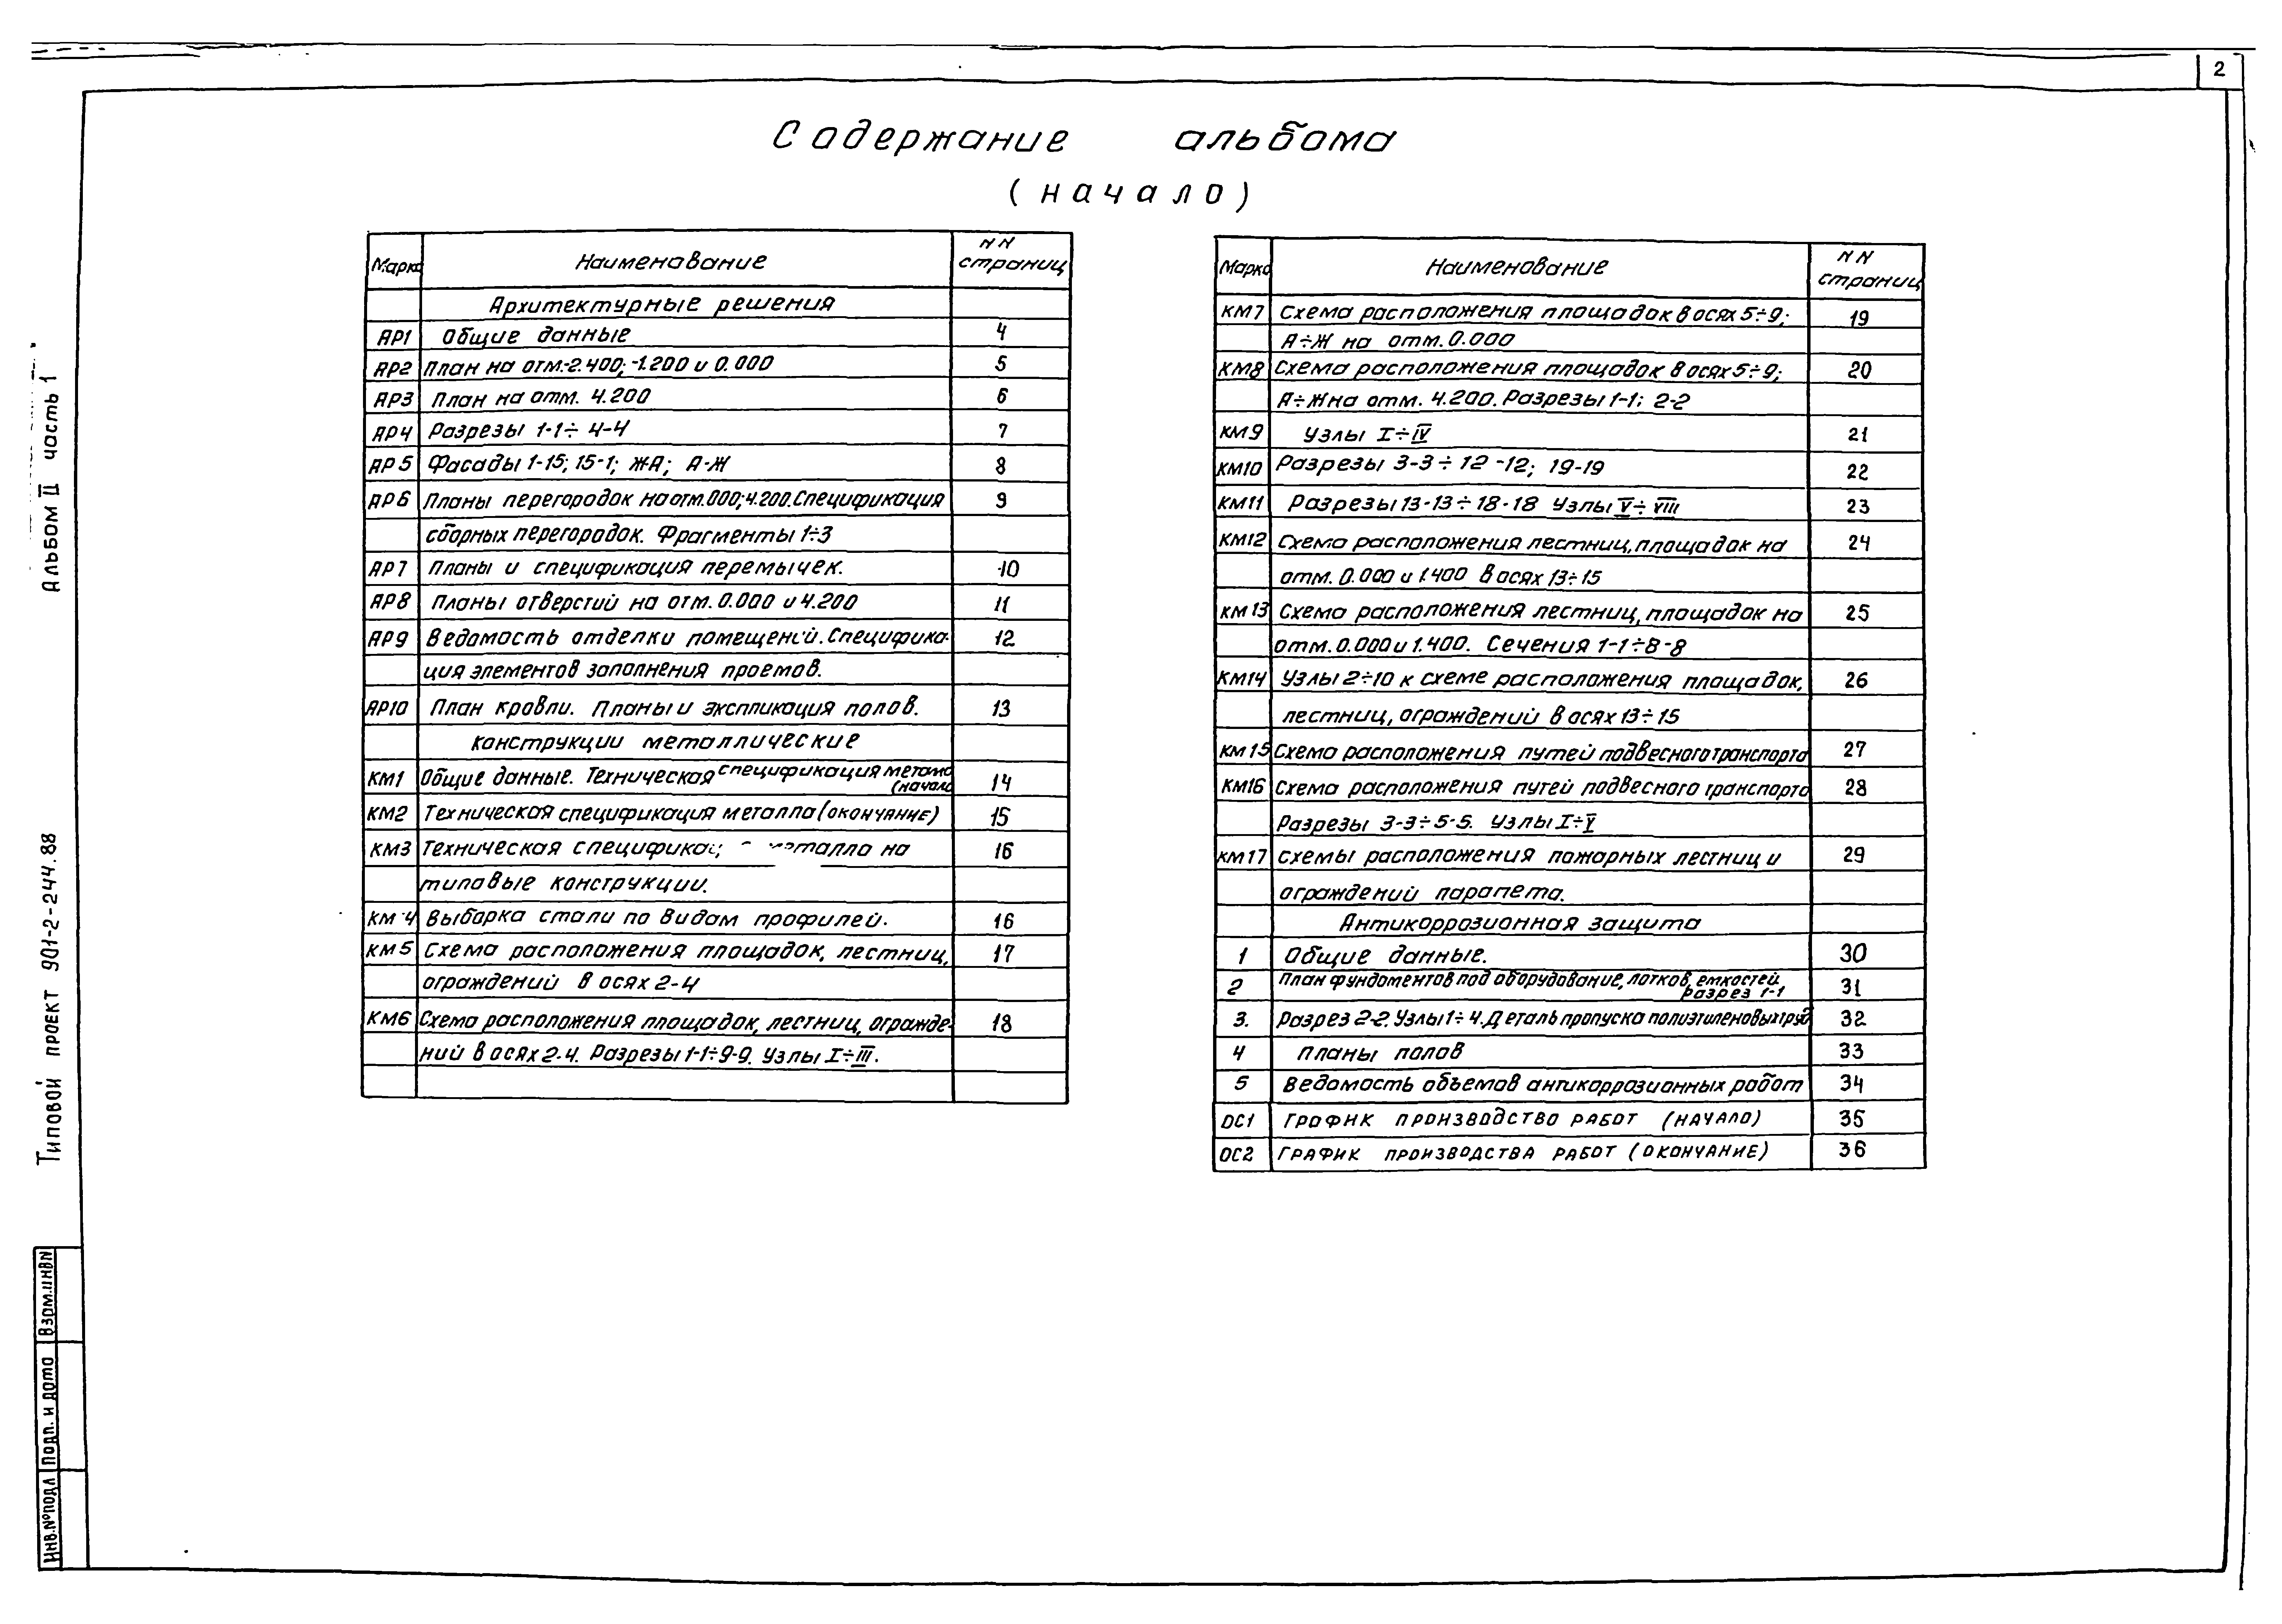 2
Содержание альбома
(начало)
Марка Наименование NN страниц
Архитектурные решения
АР1 Общие данные 4
АР2 План на отм.-2.400; -1.200 и 0.000 5
АР3 План на отм. 4.200 6
АР4 Разрезы 1-1÷4-4 7
АР5 Фасады 1-15; 15-1; Ж-А; А-Ж 8
АР6 Планы перегородок на отм.000; 4.200. Спецификация 9
сборных перегородок. Фрагменты 1÷3
АР7 Планы и спецификация перемычек. 10
АР8 Планы отверстий на отм. 0.000 и 4.200 11
АР9 Ведомость отделки помещений. Специфика- 12
ция элементов заполнения проемов.
АР10 План кровли. Планы и экспликация полов. 13
Конструкции металлические
КМ1 Общие данные. Техническая спецификация метала (начало 14
КМ2 Техническая спецификация металла (окончание) 15
КМ3 Техническая металла на 16
типовые конструкции.
КМ4 Выборка стали по видам профилей. 16
КМ5 Схема расположения площадок, лестниц, 17
ограждений в осях 2-4
КМ6 Схема расположения площадок, лестниц, огражде- 18
ний в осях 2-4. Разрезы 1-1÷9-9. Узлы I÷III.
Марка Наименование NN страниц
КМ7 Схема расположения площадок в осях 5÷9; 19
А÷Ж на отм. 0.000
КМ8 Схема расположения площадок в осях 5÷9; 20
А÷Ж на отм. 4.200. Разрезы 1-1; 2-2
КМ9 Узлы I÷IV 21
КМ10 Разрезы 3-3÷12-12; 19-19 22
КМ11 Разрезы 13-13÷18-18 Узлы V÷VIII 23
КМ12 Схема расположения лестниц, площадок на 24
отм. 0.000 и 1.400 в осях 13÷15
КМ13 Схема расположения лестниц, площадок на 25
отм. 0.000 и 1.400. Сечения 1-1÷8-8
КМ14 Узлы 2÷10 к схеме расположения площадок, 26
лестниц, ограждений в осях 13÷15
КМ15 Схема расположения путей подвесного транспорта 27
КМ16 Схема расположения путей подвесного транспорта 28
Разрезы 3-3÷5-5. Узлы I÷V
КМ17 Схемы расположения пожарных лестниц и 29
ограждений парапета.
Антикоррозионная защита
1 Общие данные. 30
2 План фундаментов под оборудование, лотков, емкостей. разрез 1-1 31
3. Разрез 2-2. Узлы 1÷4. Деталь пропуска полиэтиленовых труб 32
4 Планы полов 33
5 Ведомость объемов антикоррозионных работ 34
ОС1 График производство работ (начало) 35
ОС2 График производства работ (окончание) 36
Альбом II часть 1
Типовой проект 901-2-244.88
Взам.инвN
Подп. и дата
Инв.№подл